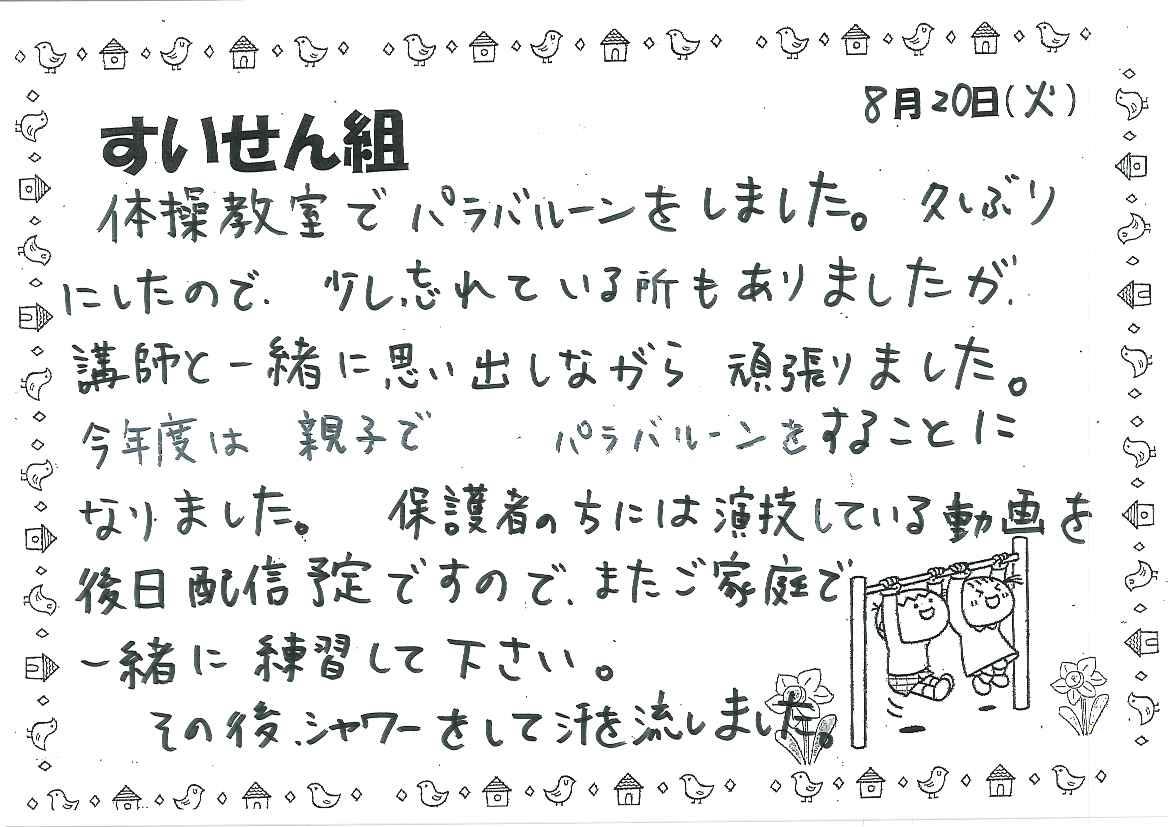 8月20日(火)
すいせん組
体操教室でパラバルーンをしました。 久しぶり
にしたので、少し忘れている所もありましたが、
講師と一緒に思い出しながら 頑張りました。
今年度は 親子で パラバルーンをすることに
なりました。 保護者のちには演技している動画を
後日配信予定ですので、またご家庭で
一緒に練習して下さい。
その後、シャワーをして汗を流しました。